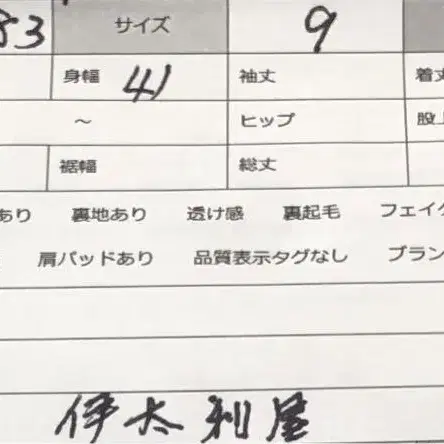 83 サイズ 9
身幅 41 袖丈 着丈
～ ヒップ 股上
裾幅 総丈
あり 裏地あり 透け感 裏起毛 フェイク
肩パッドあり 品質表示タグなし ブラン
伊太利屋